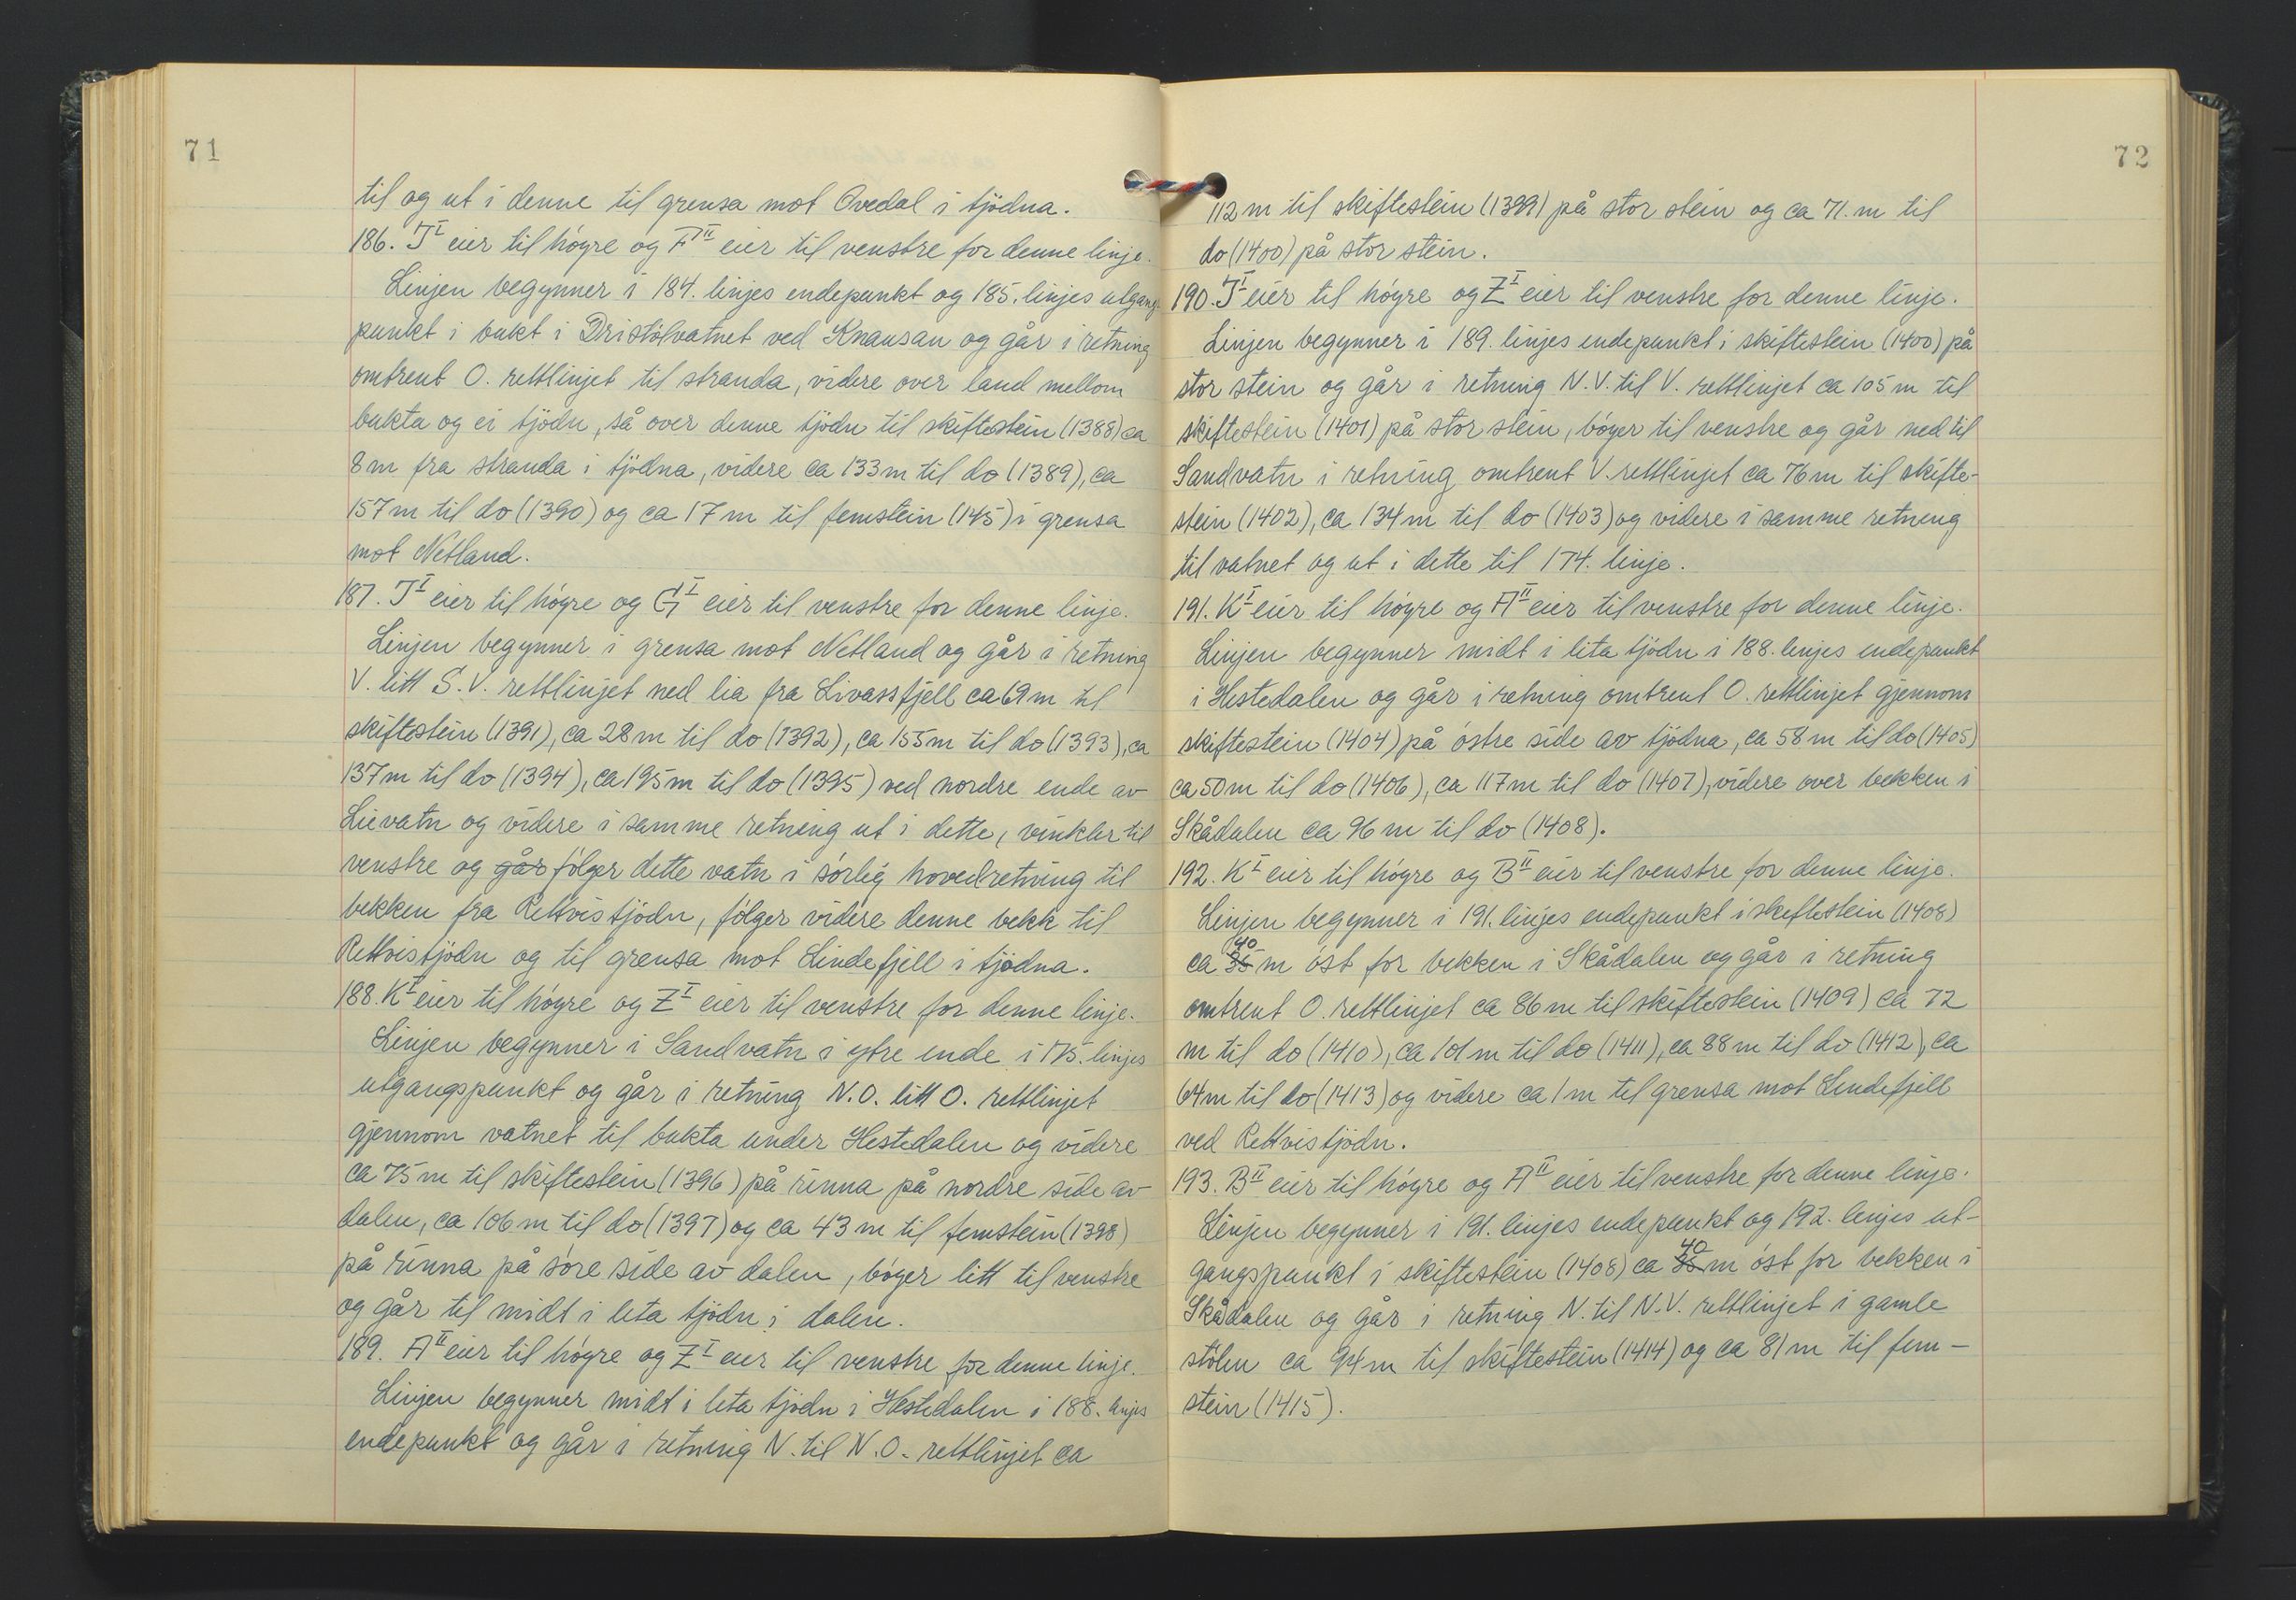 71
til og ut i denne til grensa mot Ovedal i tjödna.
186. T^I eier til högre og F^II eier til venstre for denne linje.
Linjen begynner i 184. linjes endepunkt og 185. linjes utgangs-
punkt i bukt i Dristölvatnet ved Knausan og går i retning
omtrent O. rettlinjet til stranda, videre over land mellom
bukta og ei tjödn, så over denne tjödn til skiftestein (1388) ca
8 m fra stranda i tjödna, videre ca 133 m til do (1389), ca
157 m til do (1390) og ca 17 m til femstein (145) i grensa
mot Netland.
187. T^I eier til högre og G^I eier til venstre for denne linje.
Linjen begynner i grensa mot Netland og går i retning
V. litt S.V. rettlinjet ned lia fra Livassfjell ca 69 m til
skiftestein (1391), ca 28 m til do (1392), ca 155 m til do (1393), ca
137 m til do (1394), ca 195 m til do (1395) ved nordre ende av
Lievatn og videre i samme retning ut i dette, vinkler til
venstre og går fölger dette vatn i sörlig hovedretning til
bekken fra Rettvistjödn, fölger videre denne bekk til
Rettvistjödn og til grensa mot Lindefjell i tjödna.
188. K^I eier til högre og Z^I eier til venstre for denne linje.
Linjen begynner i Sandvatn i ytre ende i 175. linjes
utgangspunkt og går i retning N.O. litt O. rettlinjet
gjennom vatnet til bukta under Hestedalen og videre
ca 75 m til skiftestein (1396) på rinna på nordre side av
dalen, ca 106 m til do (1397) og ca 43 m til femstein (1398)
på rinna på söre side av dalen, böyer litt til venstre
og går til midt i leta tjödn i dalen.
189. A^II eier til högre og Z^I eier til venstre for denne linje.
Linjen begynner midt i leta tjödn i Hestedalen i 188. linjes
endepunkt og går i retning N. til N.O. rettlinjet ca
72
112 m til skiftestein (1399) på stor stein og ca 71. m til
do (1400) på stor stein.
190. T^I eier til högre og Z^I eier til venstre for denne linje.
Linjen begynner i 189. linjes endepunkt i skiftestein (1400) på
stor stein og går i retning N.V. til V. rettlinjet ca 105 m til
skiftestein (1401) på stor stein, böyer til venstre og går ned til
Sandvatn i retning omtrent V. rettlinjet ca 76 m til skifte-
stein (1402), ca 134 m til do (1403) og videre i samme retning
til vatnet og ut i dette til 174. linje.
191. K^I eier til högre og A^II eier til venstre for denne linje.
Linjen begynner midt i lita tjödn i 188. linjes endepunkt
i Hestedalen og går i retning omtrent O. rettlinjet gjennom
skiftestein (1404) på östre side av tjödna, ca 58 m til do (1405)
ca 50 m til do (1406), ca 117 m til do (1407), videre over bekken i
Skådalen ca 96 m til do (1408).
192. K^I eier til högre og B^II eier til venstre for denne linje.
Linjen begynner i 191. linjes endepunkt i skiftestein (1408)
ca 35 40 m öst for bekken i Skådalen og går i retning
omtrent O. rettlinjet ca 86 m til skiftestein (1409) ca 72
m til do (1410), ca 101 m til do (1411), ca 88 m til do (1412), ca
64 m til do (1413) og videre ca 1 m til grensa mot Lindefjell
ved Rettvistjödn.
193. B^II eier til högre og A^II eier til venstre for denne linje.
Linjen begynner i 191. linjes endepunkt og 192. linjes ut-
gangspunkt i skiftestein (1408) ca 35 40 m öst for bekken i
Skådalen og går i retning N. til N.V. rettlinjet i gamle
stölen ca 94 m til skiftestein (1414) og ca 81 m til fem-
stein (1415).